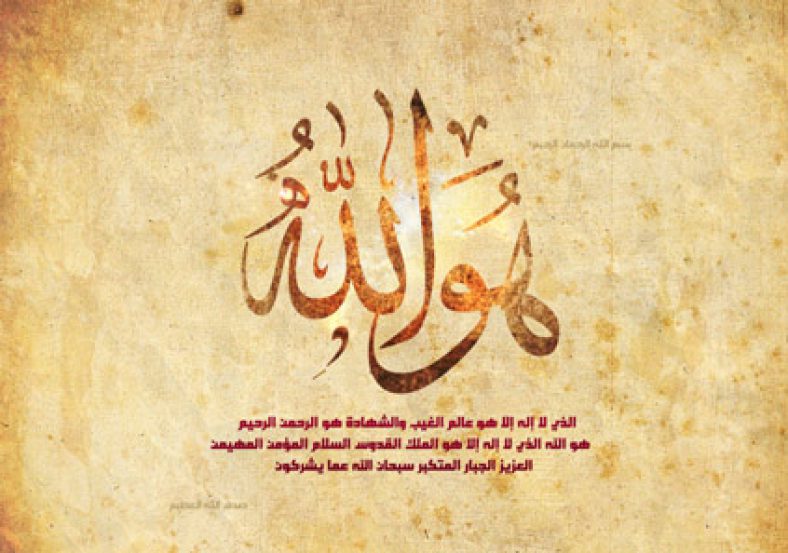 بسم الله الرحمن الرحيم
هُوَ اللَّهُ
الذي لا إله إلا هو عالم الغيب والشهادة هو الرحمن الرحيم
هو الله الذي لا إله إلا هو الملك القدوس السلام المؤمن المهيمن
العزيز الجبار المتكبر سبحان الله عما يشركون
صدق الله العظيم